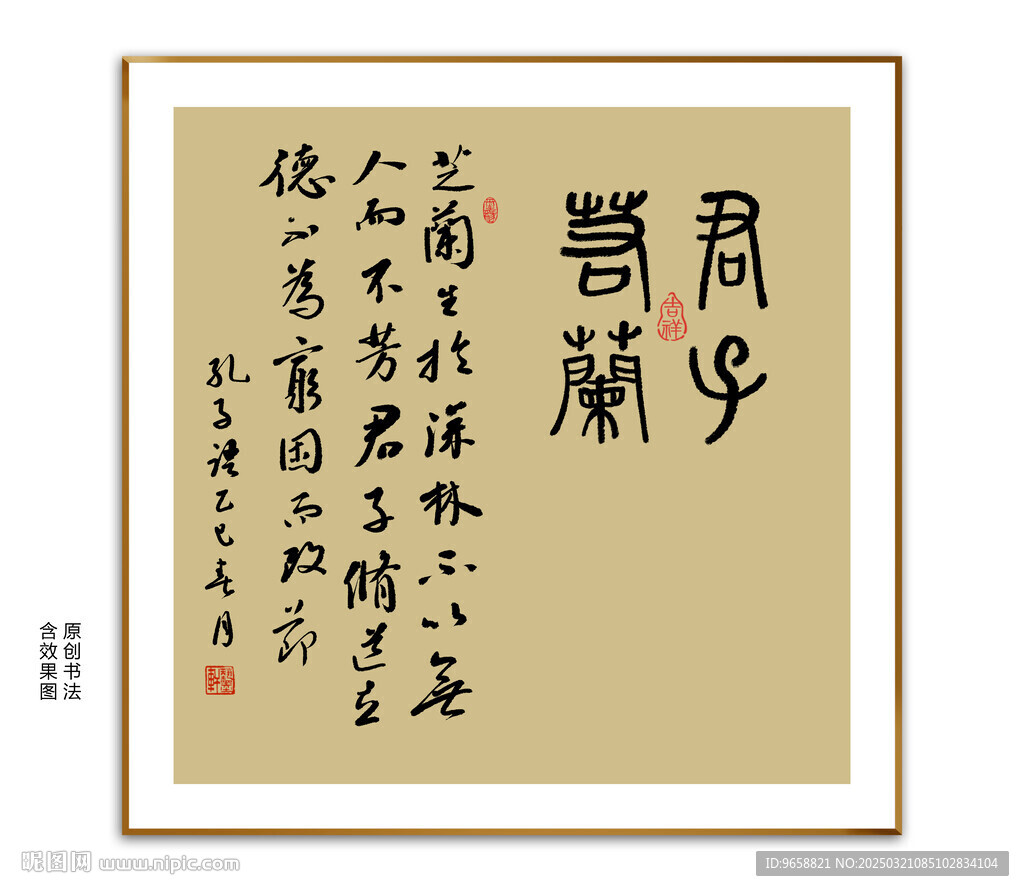 君子
若蘭
吉祥
芝蘭生於深林不以無
人而不芳君子脩道立
德不為窮困而改節
孔子語乙巳春月
原创书法
含效果图
昵图网 www.nipic.com
ID:9658821 NO:20250321085102834104